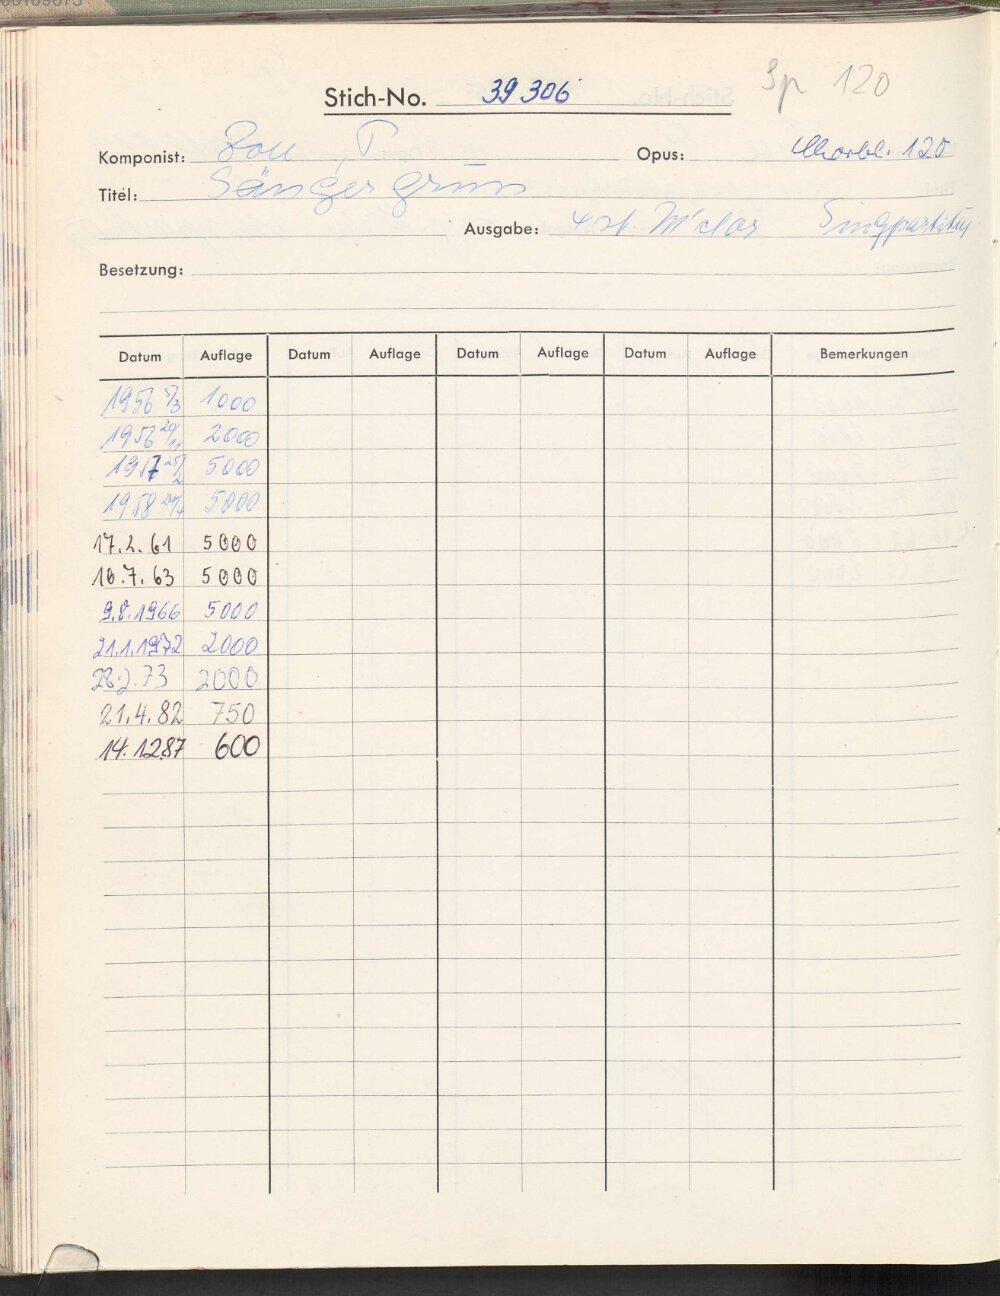 Sp 120
Stich-No. 39306
Komponist: Zoll, P. Opus: Chorbl. 120
Titel: Sängergruss
Ausgabe: 4 st. M'chor Singpartitur
Besetzung:
Datum Auflage Datum Auflage Datum Auflage Datum Auflage Bemerkungen
1956 5/3 1000
1956 20/11 2000
1957 25/2 5000
1958 5000
17.2.61 5000
10.7.63 5000
9.8.1966 5000
21.1.1972 2000
28.2.73 2000
21.4.82 750
14.12.87 600